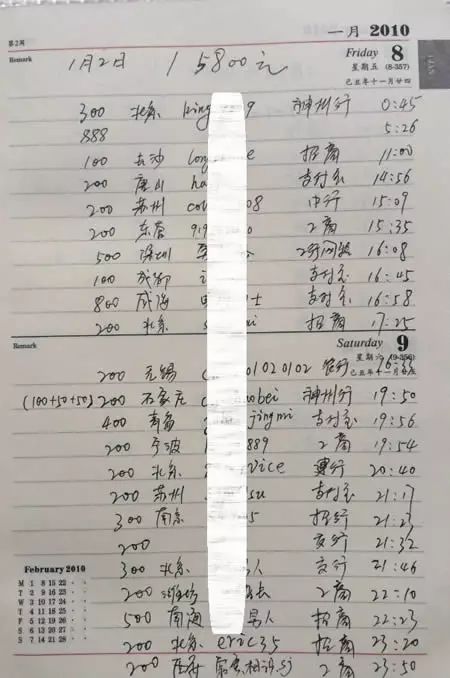 第2周
一月 2010
Remark
Friday 8
星期五 (8-357)
己丑年十一月廿四
1月2日 15800元
300 北京 king 9 神州行 0:45
888 5:26
100 长沙 long e 招商 11:00
200 唐山 ha 支付宝 14:56
200 苏州 co 08 中行 15:09
200 东营 919 0 工商 15:35
500 深圳 工行网银 16:08
100 成都 支付宝 16:45
800 威海 士 支付宝 16:58
200 北京 s ni 招商 17:25
Remark
Saturday 9
星期六
200 无锡 01020102 农行
(100+50+50) 200 石家庄 bei 神州行 19:50
400 青岛 jingmi 支付宝 19:56
200 宁波 889 工商 19:54
200 北京 vice 建行 20:40
200 苏州 su 支付宝 21:17
300 南京 5 招行 21:23
200 交行 21:32
300 北京 人 交行 21:46
200 潍坊 长 工商 22:10
500 南海 男人 招商 22:23
200 北京 eric35 招商 23:20
200 工商 23:50
February 2010
M 1 8 15 22
T 2 9 16 23
W 3 10 17 24
T 4 11 18 25
F 5 12 19 26
S 6 13 20 27
S 7 14 21 28